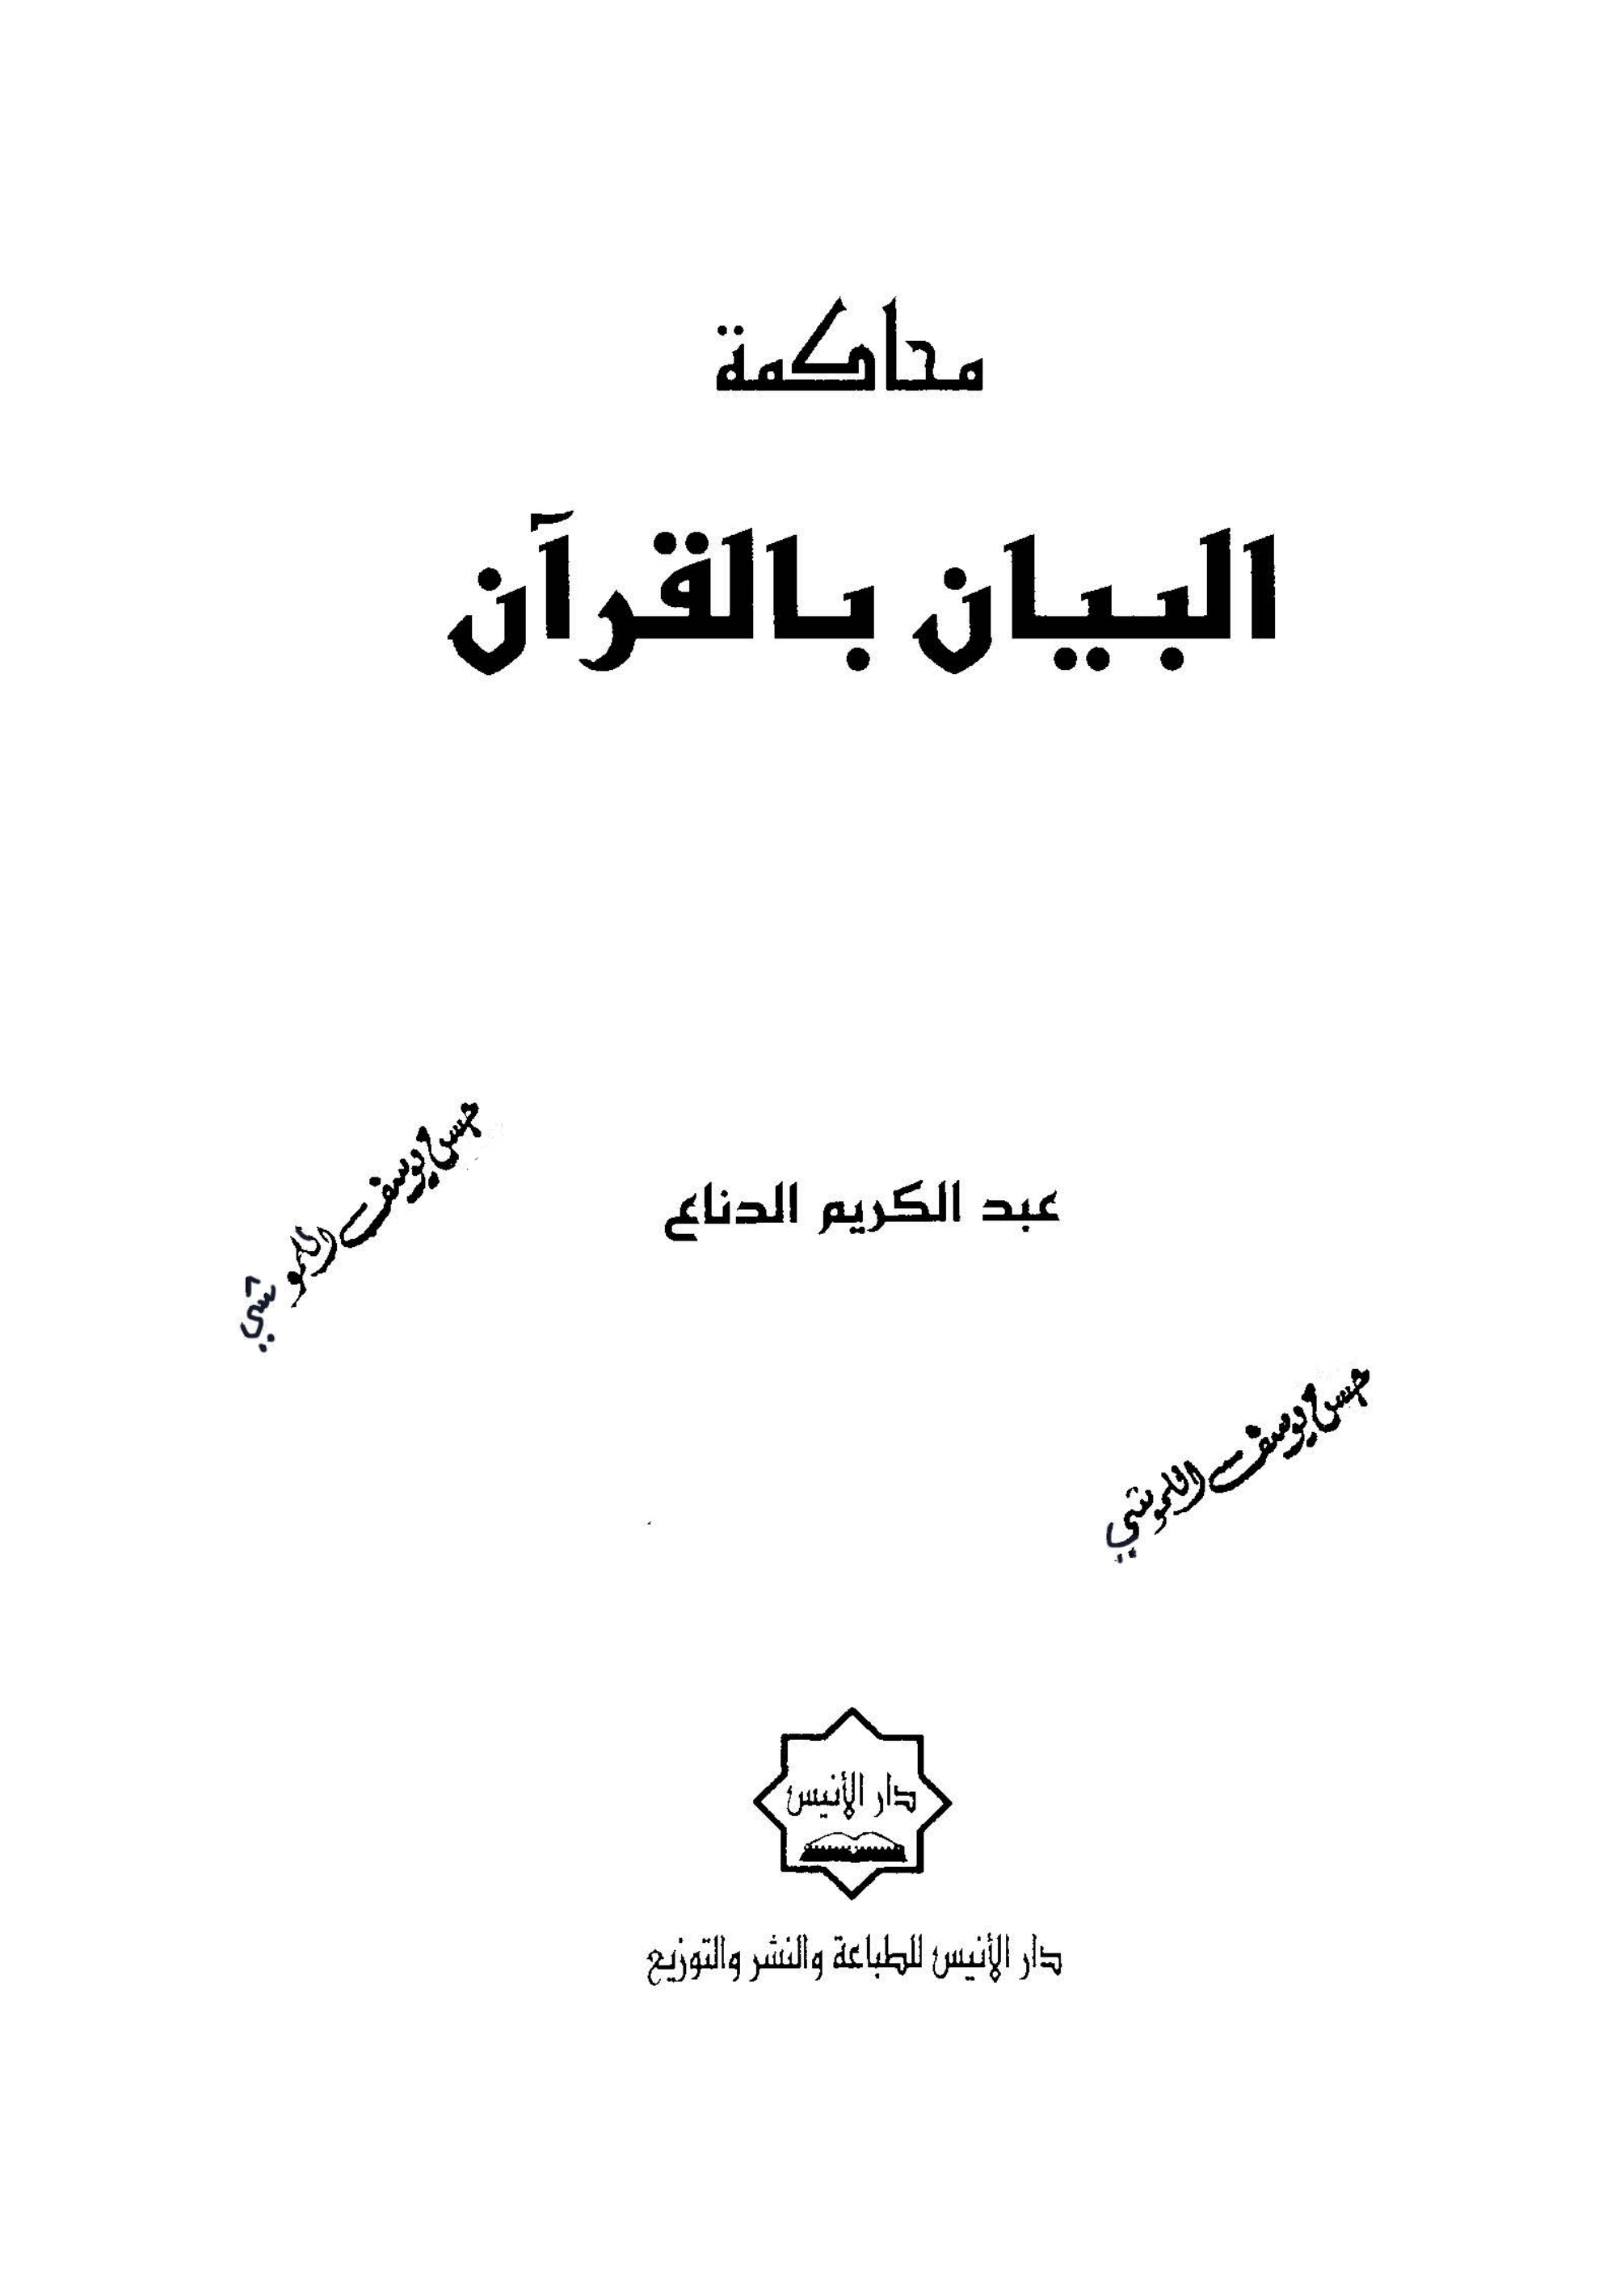 محاكمة
البيان بالقرآن
عبد الكريم الدناع
حسن يوسف
حسن يوسف
دار الأنيس
دار الأنيس للطباعة والنشر والتوزيع